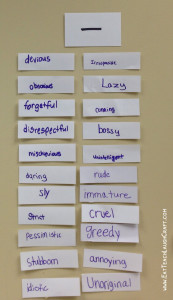 —
devious
Inconsiderate
obnoxious
Lazy
forgetful
cunning
disrespectful
bossy
mischevious
Unintelligent
daring
rude
sly
immature
Strict
cruel
pessimistic
Greedy
Stubborn
annoying
Idiotic
Unoriginal
www.EatTeachLaughCraft.com